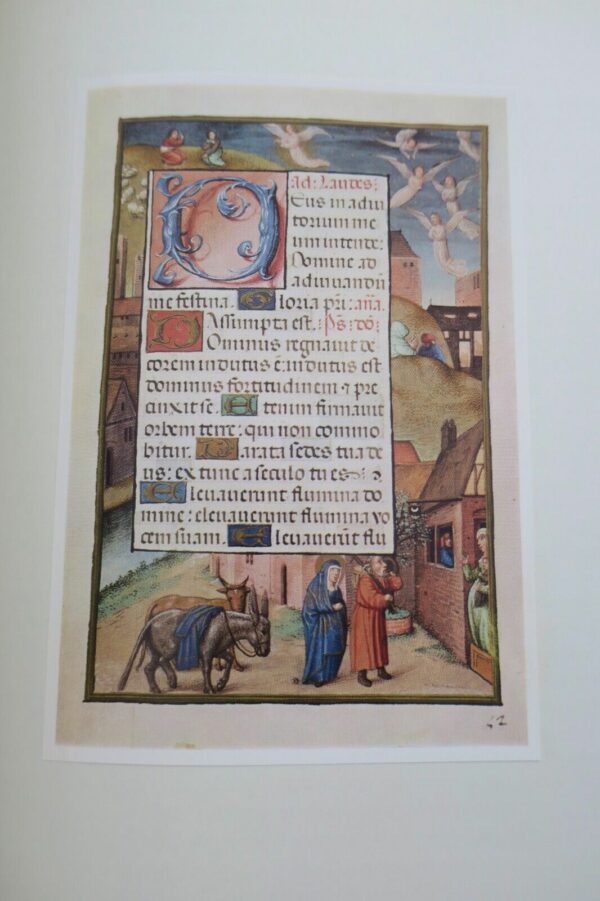 ad: Laudes:
Deus in adiu
torium me
um intende:
Domine ad
adiuvandū
me festina. Gloria pri: ana.
Assumpta est. Ps: dō:
Dominus regnavit de
corem indutus ē: indutus est
dominus fortitudinem ⁊ pre
cinxit se. Etenim firmavit
orbem terre: qui non commo
bitur. Parata sedes tua de
us: ex tunc a seculo tu es
Elevaverunt flumina do
mine: elevaverunt flumina vo
cem suam. Elevaverūt flu